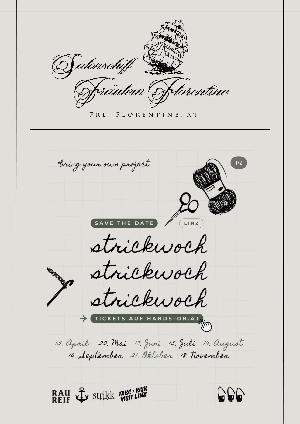 Salonschiff
Fräulein Florentine
FRL-FLORENTINE.AT
bring your own project
SAVE THE DATE
LINZ
strickwoch
strickwoch
strickwoch
TICKETS AUF HANDS-ON.AT
April 20. Mai Juni Juli August
September Oktober November
RAU
REIF
strikk
VISIT LINZ